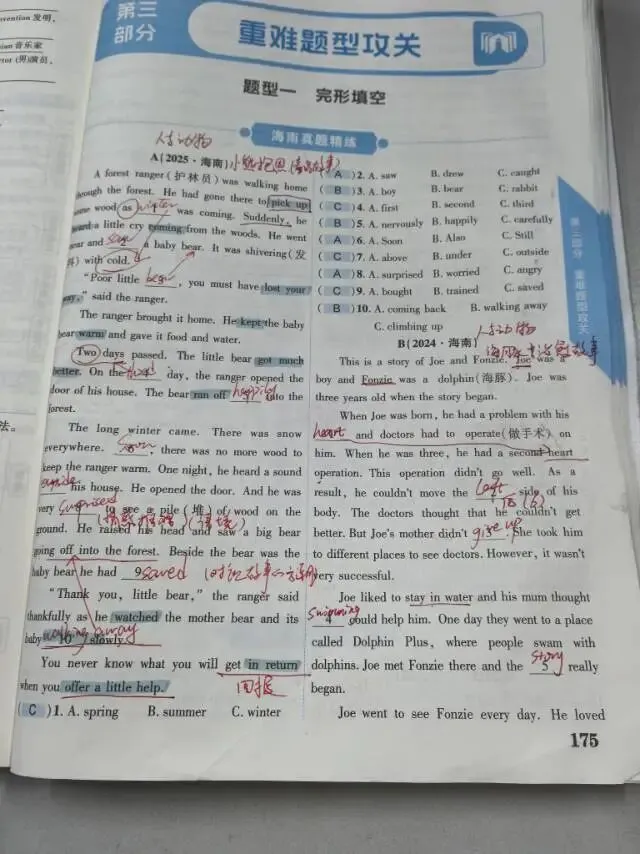 vention 发明,
ian 音乐家
tor (男)演员,
法。
第三
部分
重难题型攻关
题型一 完形填空
海南真题精练
人与动物
A(2025·海南)小熊报恩
A forest ranger(护林员) was walking home
through the forest. He had gone there to pick up
some wood as winter was coming. Suddenly, he
heard a little cry coming from the woods. He went
near and saw a baby bear. It was shivering(发
抖) with cold.
"Poor little bear, you must have lost your
way," said the ranger.
The ranger brought it home. He kept the baby
bear warm and gave it food and water.
Two days passed. The little bear got much
better. On the third day, the ranger opened the
door of his house. The bear ran off happily into the
forest.
The long winter came. There was snow
everywhere. Soon, there was no more wood to
keep the ranger warm. One night, he heard a sound
outside his house. He opened the door. And he was
very surprised to see a pile(堆) of wood on the
ground. He raised his head and saw a big bear
going off into the forest. Beside the bear was the
baby bear he had 9 saved
"Thank you, little bear," the ranger said
thankfully as he watched the mother bear and its
baby walking away 10 slowly.
You never know what you will get in return
when you offer a little help. 回报
( C )1. A. spring B. summer C. winter
( A )2. A. saw B. drew C. caught
( B )3. A. boy B. bear C. rabbit
( C )4. A. first B. second C. third
( B )5. A. nervously B. happily C. carefully
( A )6. A. Soon B. Also C. Still
( C )7. A. above B. under C. outside
( A )8. A. surprised B. worried C. angry
( C )9. A. bought B. trained C. saved
( B )10. A. coming back B. walking away
C. climbing up
人与动物
B(2024·海南)
This is a story of Joe and Fonzie. Joe was a
boy and Fonzie was a dolphin(海豚). Joe was
three years old when the story began.
When Joe was born, he had a problem with his
heart and doctors had to operate(做手术) on
him. When he was three, he had a second heart
operation. This operation didn't go well. As a
result, he couldn't move the left side of his
body. The doctors thought that he couldn't get
better. But Joe's mother didn't give up. She took him
to different places to see doctors. However, it wasn't
very successful.
Joe liked to stay in water and his mum thought
swimming 4 could help him. One day they went to a place
called Dolphin Plus, where people swam with
dolphins. Joe met Fonzie there and the story 5 really
began.
Joe went to see Fonzie every day. He loved
第三部分 重难题型攻关
175